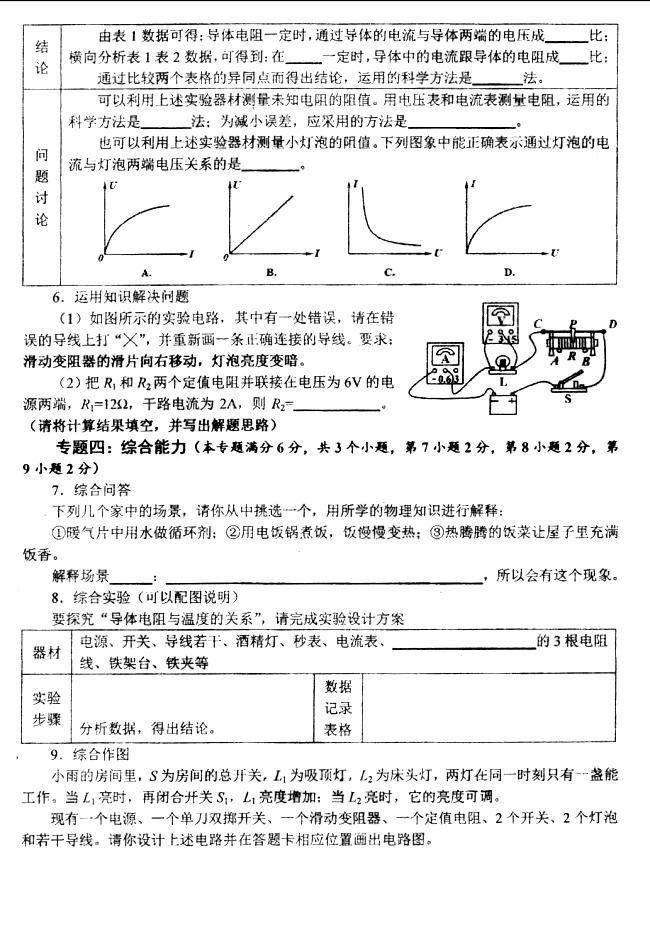 结论
由表1数据可得:导体电阻一定时,通过导体的电流与导体两端的电压成______比;
横向分析表1表2数据,可得到:在_____一定时,导体中的电流跟导体的电阻成____比;
通过比较两个表格的异同点而得出结论,运用的科学方法是_______法。
问题讨论
可以利用上述实验器材测量未知电阻的阻值。用电压表和电流表测量电阻,运用的
科学方法是_______法;为减小误差,应采用的方法是_______________。
也可以利用上述实验器材测量小灯泡的阻值。下列图象中能正确表示通过灯泡的电
流与灯泡两端电压关系的是________。
U U I I
0 I 0 I U U
A. B. C. D.
6.运用知识解决问题
(1)如图所示的实验电路,其中有一处错误,请在错
误的导线上打“×”,并重新画一条正确连接的导线。要求:
滑动变阻器的滑片向右移动,灯泡亮度变暗。
V
- 3 15
A
- 0.6 3
L
C P D
A R B
S
- +
(2)把R₁和R₂两个定值电阻并联接在电压为6V的电
源两端,R₁=12Ω,干路电流为2A,则R₂=____________。
(请将计算结果填空,并写出解题思路)
专题四:综合能力(本专题满分6分,共3个小题,第7小题2分,第8小题2分,第
9小题2分)
7.综合问答
下列几个家中的场景,请你从中挑选一个,用所学的物理知识进行解释:
①暖气片中用水做循环剂;②用电饭锅煮饭,饭慢慢变热;③热腾腾的饭菜让屋子里充满
饭香。
解释场景______:____________________________________________,所以会有这个现象。
8.综合实验(可以配图说明)
要探究“导体电阻与温度的关系”,请完成实验设计方案
器材
电源、开关、导线若干、酒精灯、秒表、电流表、____________________的3根电阻
线、铁架台、铁夹等
实验步骤
分析数据,得出结论。
数据记录表格
9.综合作图
小雨的房间里,S为房间的总开关,L₁为吸顶灯,L₂为床头灯,两灯在同一时刻只有一盏能
工作。当L₁亮时,再闭合开关S₁,L₁亮度增加;当L₂亮时,它的亮度可调。
现有一个电源、一个单刀双掷开关、一个滑动变阻器、一个定值电阻、2个开关、2个灯泡
和若干导线。请你设计上述电路并在答题卡相应位置画出电路图。